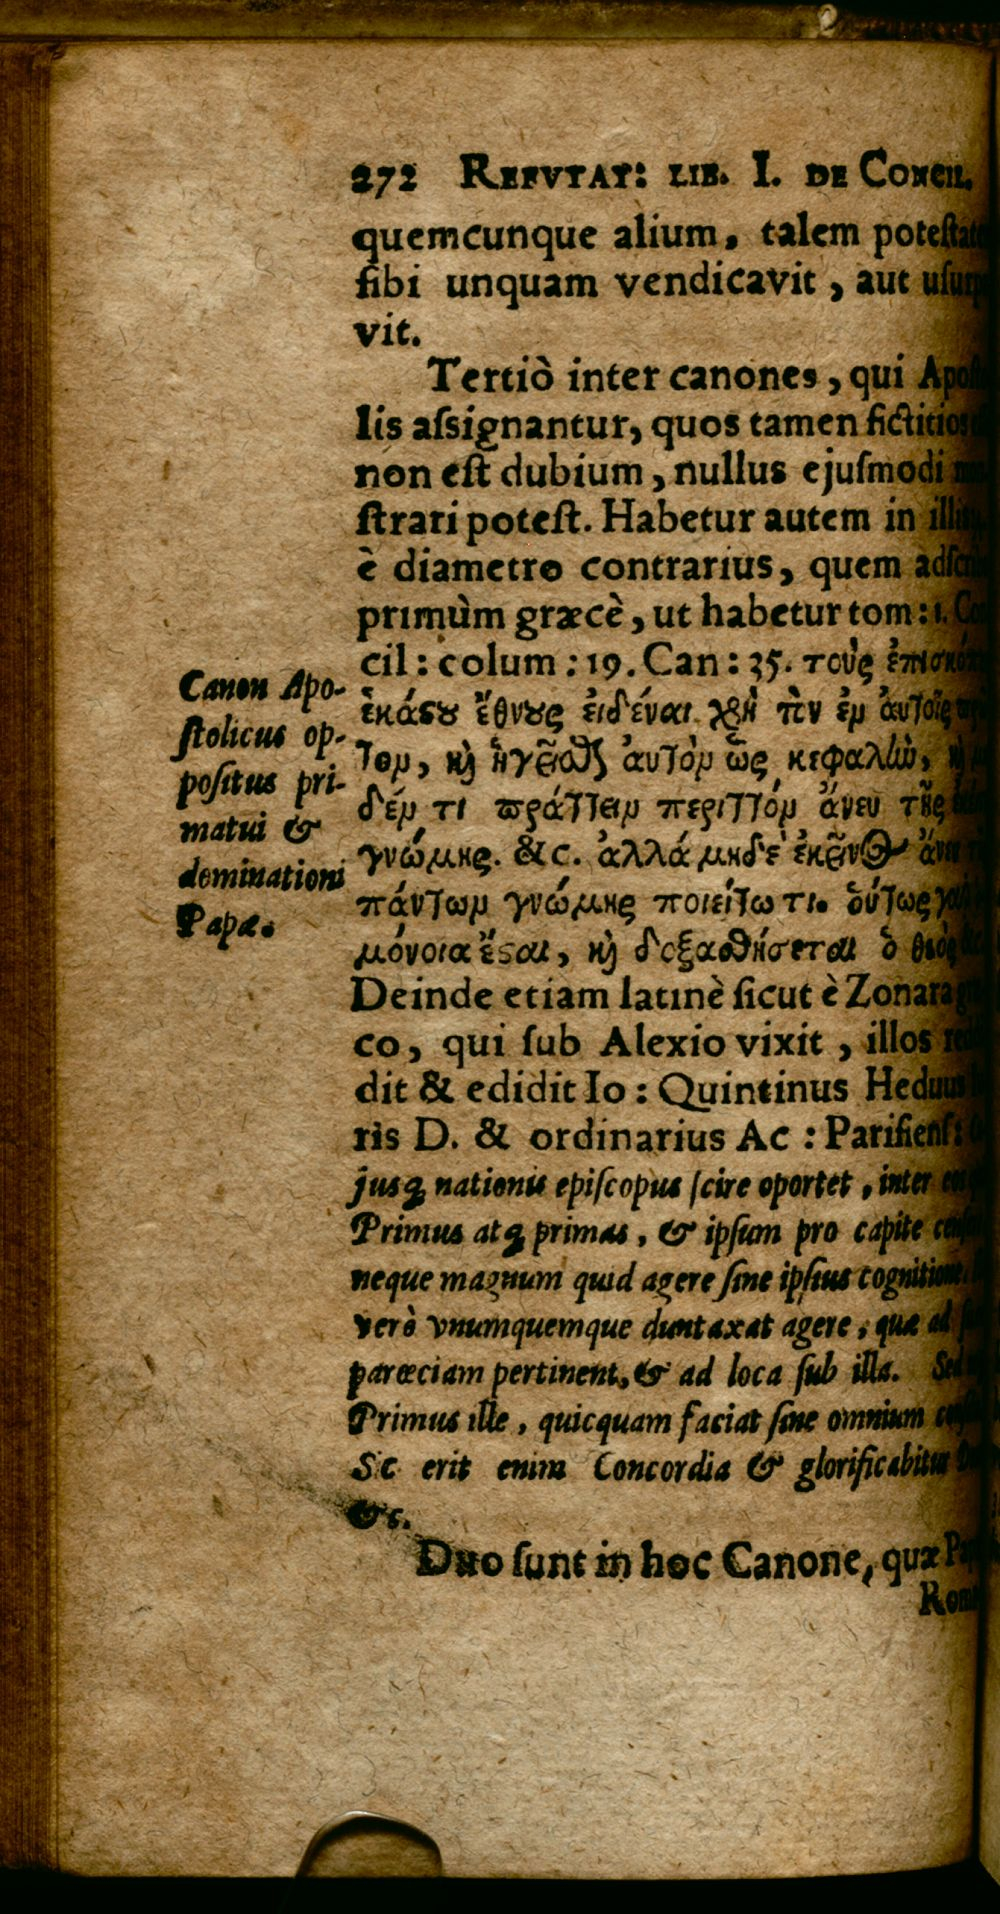 272 REFVTAT: LIB. I. DE CONCIL.
quemcunque alium, talem
ſibi unquam vendicavit, aut
vit.
Tertiò inter canones, qui
lis aſsignantur, quos tamen
non eſt dubium, nullus ejuſmodi
ſtrari poteſt. Habetur autem in
è diametro contrarius, quem
primùm græcè, ut habetur tom: 1.
cil: colum: 19. Can: 35. τοὺς
ἑκάϛȣ ἔθνȣς εἰδέναι χρὴ τὸν ἐμ ἀυτοῖς
τομ, κὴ ἡγεῖσθζ ἀυτὸμ ὣς κεφαλὼ,
δέμ τι πράττειμ περιττόμ ἄνευ τῆς
γνώμης. &c. ἀλλά μηδὲ ἐκεῖνΘ-
πάντωμ γνώμης ποιείτω τι. ὁύτως
μόνοια ἔϛαι, κὴ δοξασθήσεται ὁ θεὸς
Deinde etiam latinè ſicut è Zonara
co, qui ſub Alexio vixit, illos
dit & edidit Io: Quintinus
ris D. & ordinarius Ac: Pariſienſ:
juſq́ nationis epiſcopus ſcire oportet, inter
Primus atq́ primas, & ipſum pro capite
neque magnum quid agere ſine ipſius
verò vnumquemque duntaxat agere, quæ ad
parœciam pertinent, & ad loca ſub illa. Sed
Primus ille, quicquam faciat ſine omnium
Sc erit enim Concordia & glorificabitur
&c.
Duo ſunt in hoc Canone, quæ
Canon Apo-
ſtolicus op-
poſitus pri-
matui &
dominationi
Papæ.